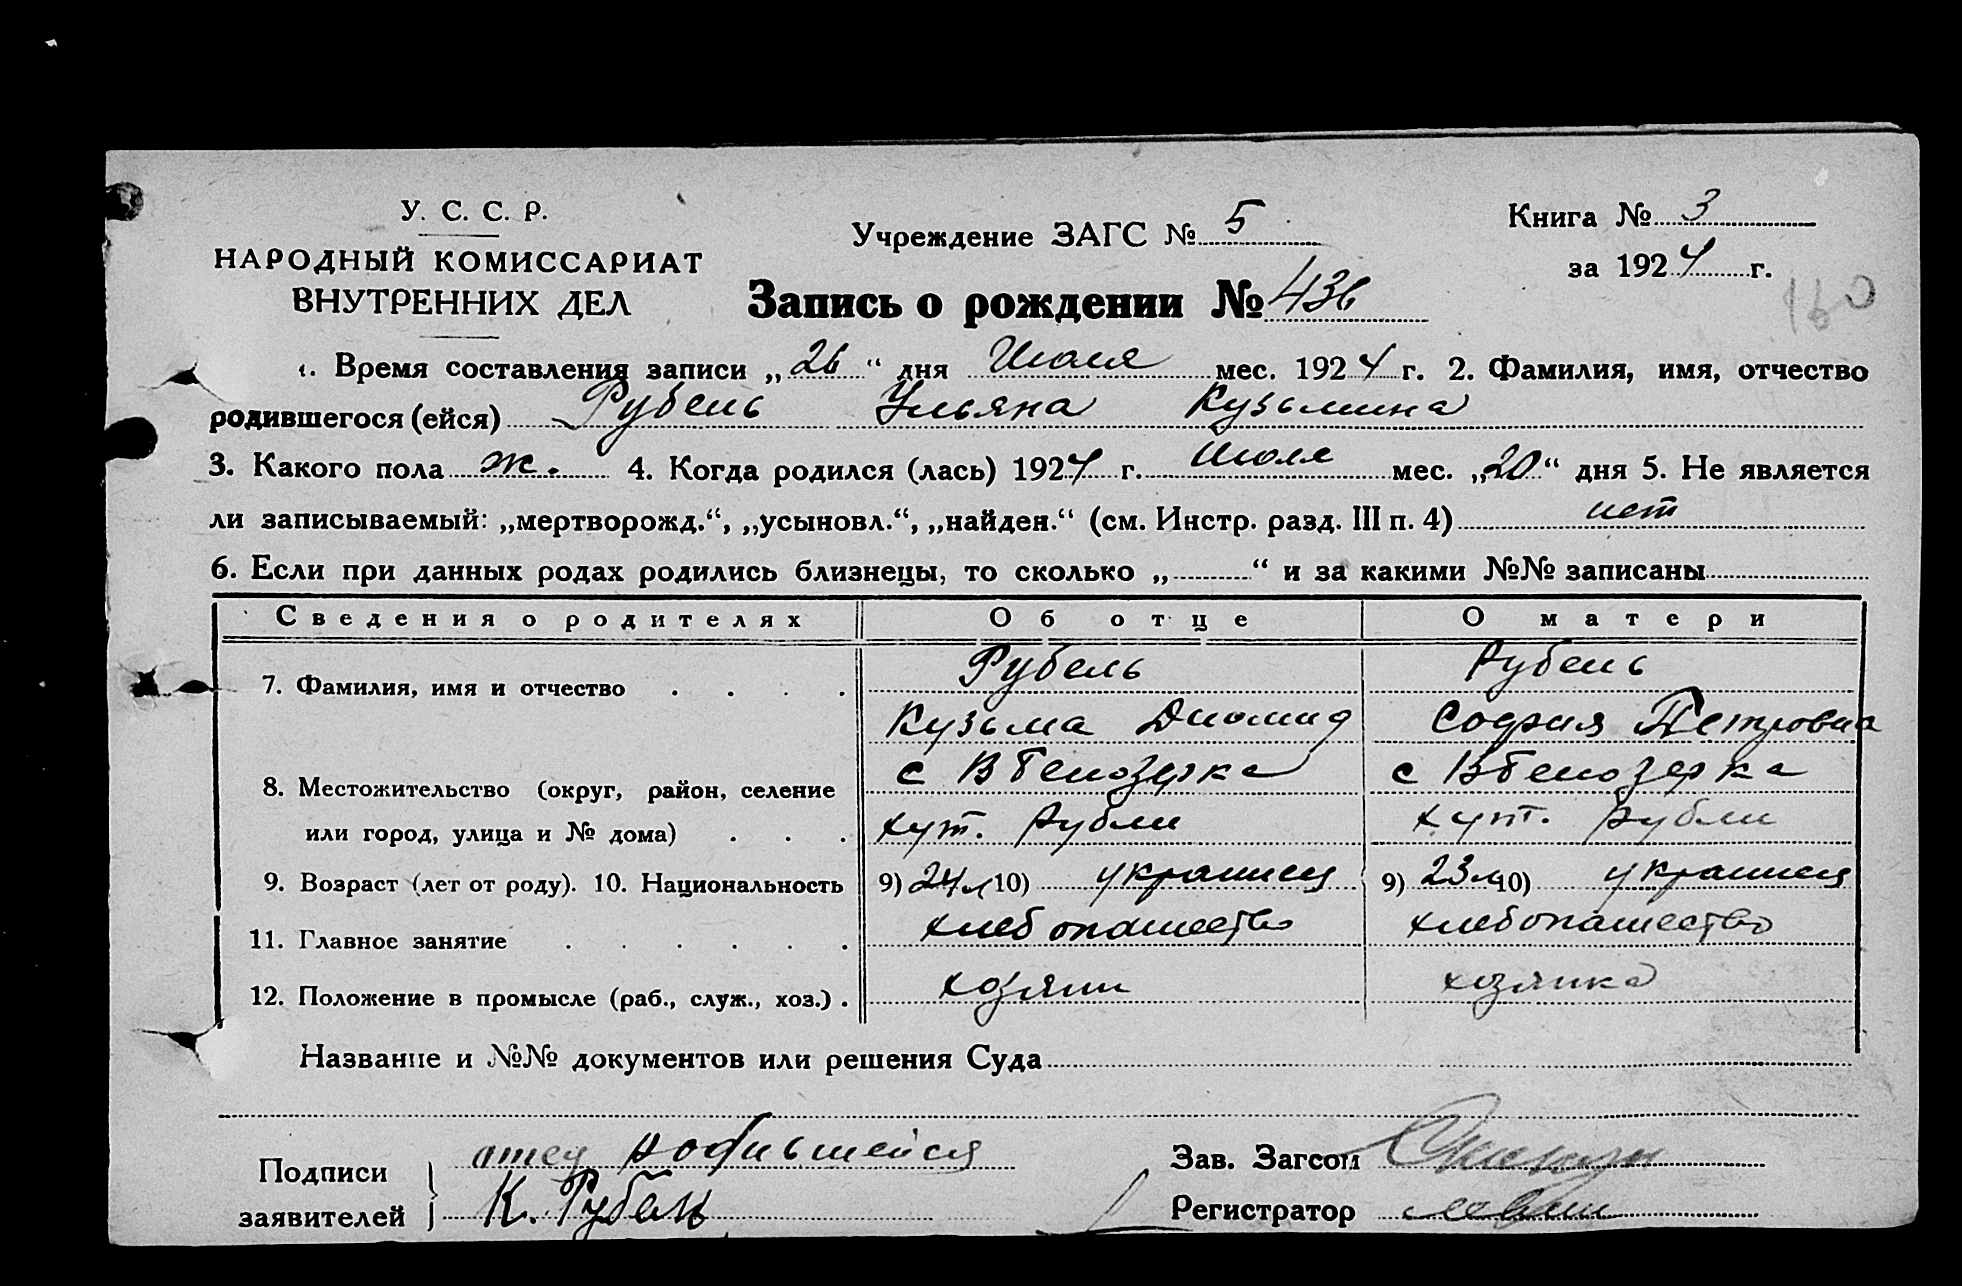 У. С. С. Р.
НАРОДНЫЙ КОМИССАРИАТ
ВНУТРЕННИХ ДЕЛ
Учреждение ЗАГС № 5
Книга № 3
за 1924 г.
160
Запись о рождении № 436
1. Время составления записи „26“ дня Июля мес. 1924 г. 2. Фамилия, имя, отчество
родившегося (ейся) Рубель Ульяна Кузьмина
3. Какого пола ж. 4. Когда родился (лась) 1924 г. Июля мес. „20“ дня 5. Не является
ли записываемый: „мертворожд.“, „усыновл.“, „найден.“ (см. Инстр. разд. III п. 4) нет
6. Если при данных родах родились близнецы, то сколько „ “ и за какими №№ записаны
Сведения о родителях Об отце О матери
7. Фамилия, имя и отчество . . . . Рубель Рубель
Кузьма Диомид София Петровна
8. Местожительство (округ, район, селение с ВБелозерка с ВБелозерка
или город, улица и № дома) . . . хут. Рубли хут. Рубли
9. Возраст (лет от роду). 10. Национальность 9) 24 л 10) украинец 9) 23 л 10) украинец
11. Главное занятие . . . . . . хлебопашество хлебопашество
12. Положение в промысле (раб., служ., хоз.) . хозяин хозяйка
Название и №№ документов или решения Суда
Подписи заявителей
отец родившейся
К. Рубель
Зав. Загсом
Регистратор